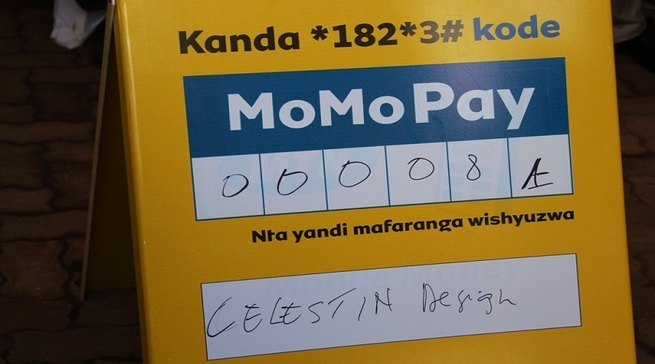 Kanda *182*3# kode
MoMoPay
0 0 0 0 8 1
Nta yandi mafaranga wishyuzwa
CELESTIN Design